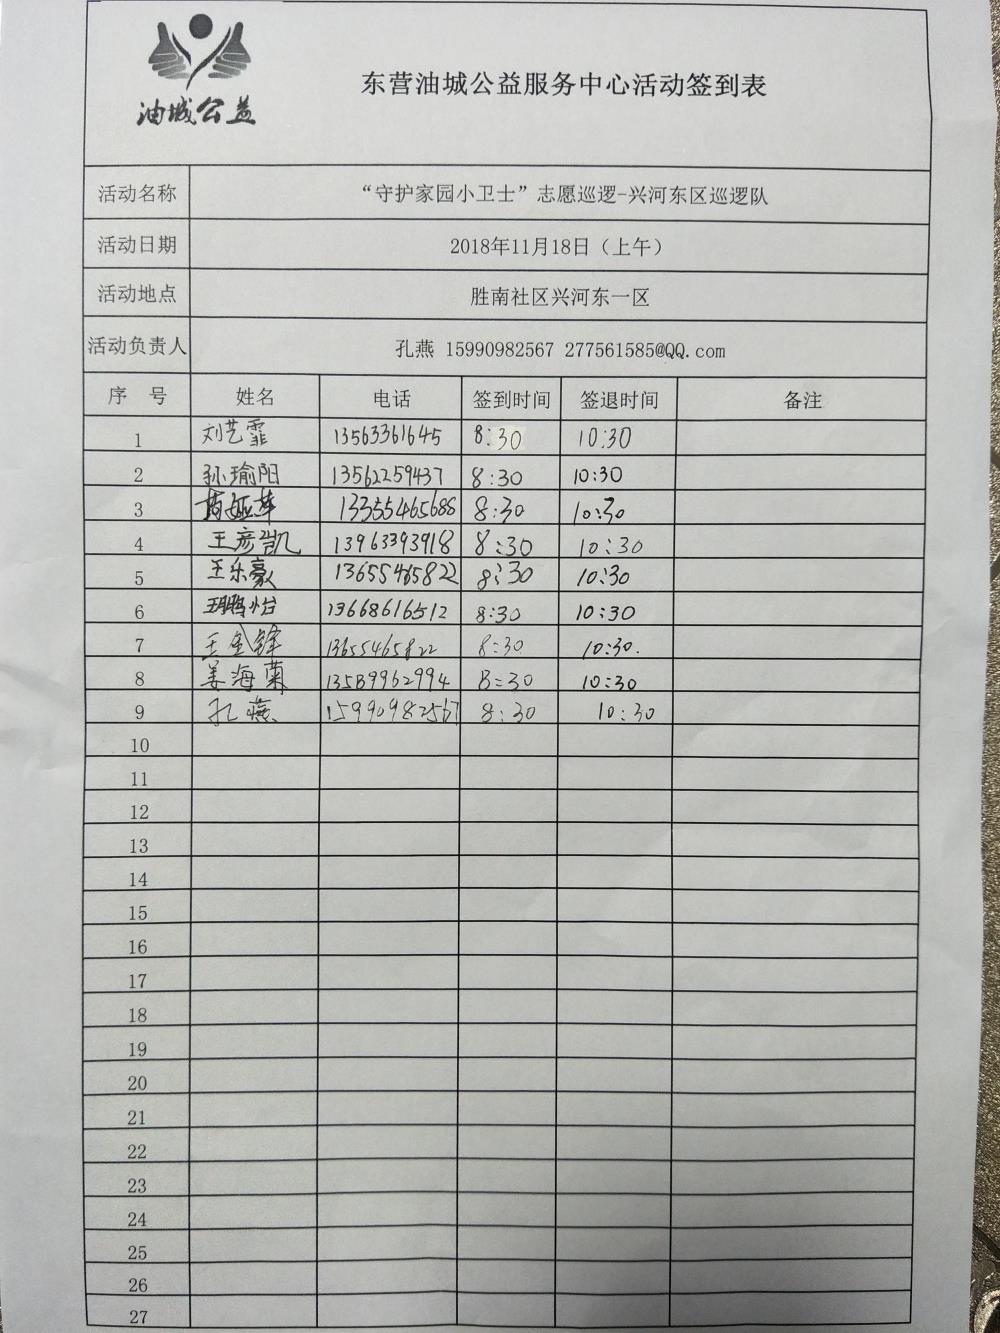 油城公益
东营油城公益服务中心活动签到表
活动名称 “守护家园小卫士”志愿巡逻-兴河东区巡逻队
活动日期 2018年11月18日（上午）
活动地点 胜南社区兴河东一区
活动负责人 孔燕 15990982567 277561585@QQ.com
序 号 姓名 电话 签到时间 签退时间 备注
1 刘艺霏 13563361645 8:30 10:30
2 孙瑜阳 13562259437 8:30 10:30
3 13355465688 8:30 10:30
4 王彦凯 13963393918 8:30 10:30
5 王乐豪 13655465822 8:30 10:30
6 王鹏怡 13668616512 8:30 10:30
7 王金锋 13655465822 8:30 10:30.
8 姜海菊 13589962994 8:30 10:30
9 孔燕 15990982567 8:30 10:30
10
11
12
13
14
15
16
17
18
19
20
21
22
23
24
25
26
27